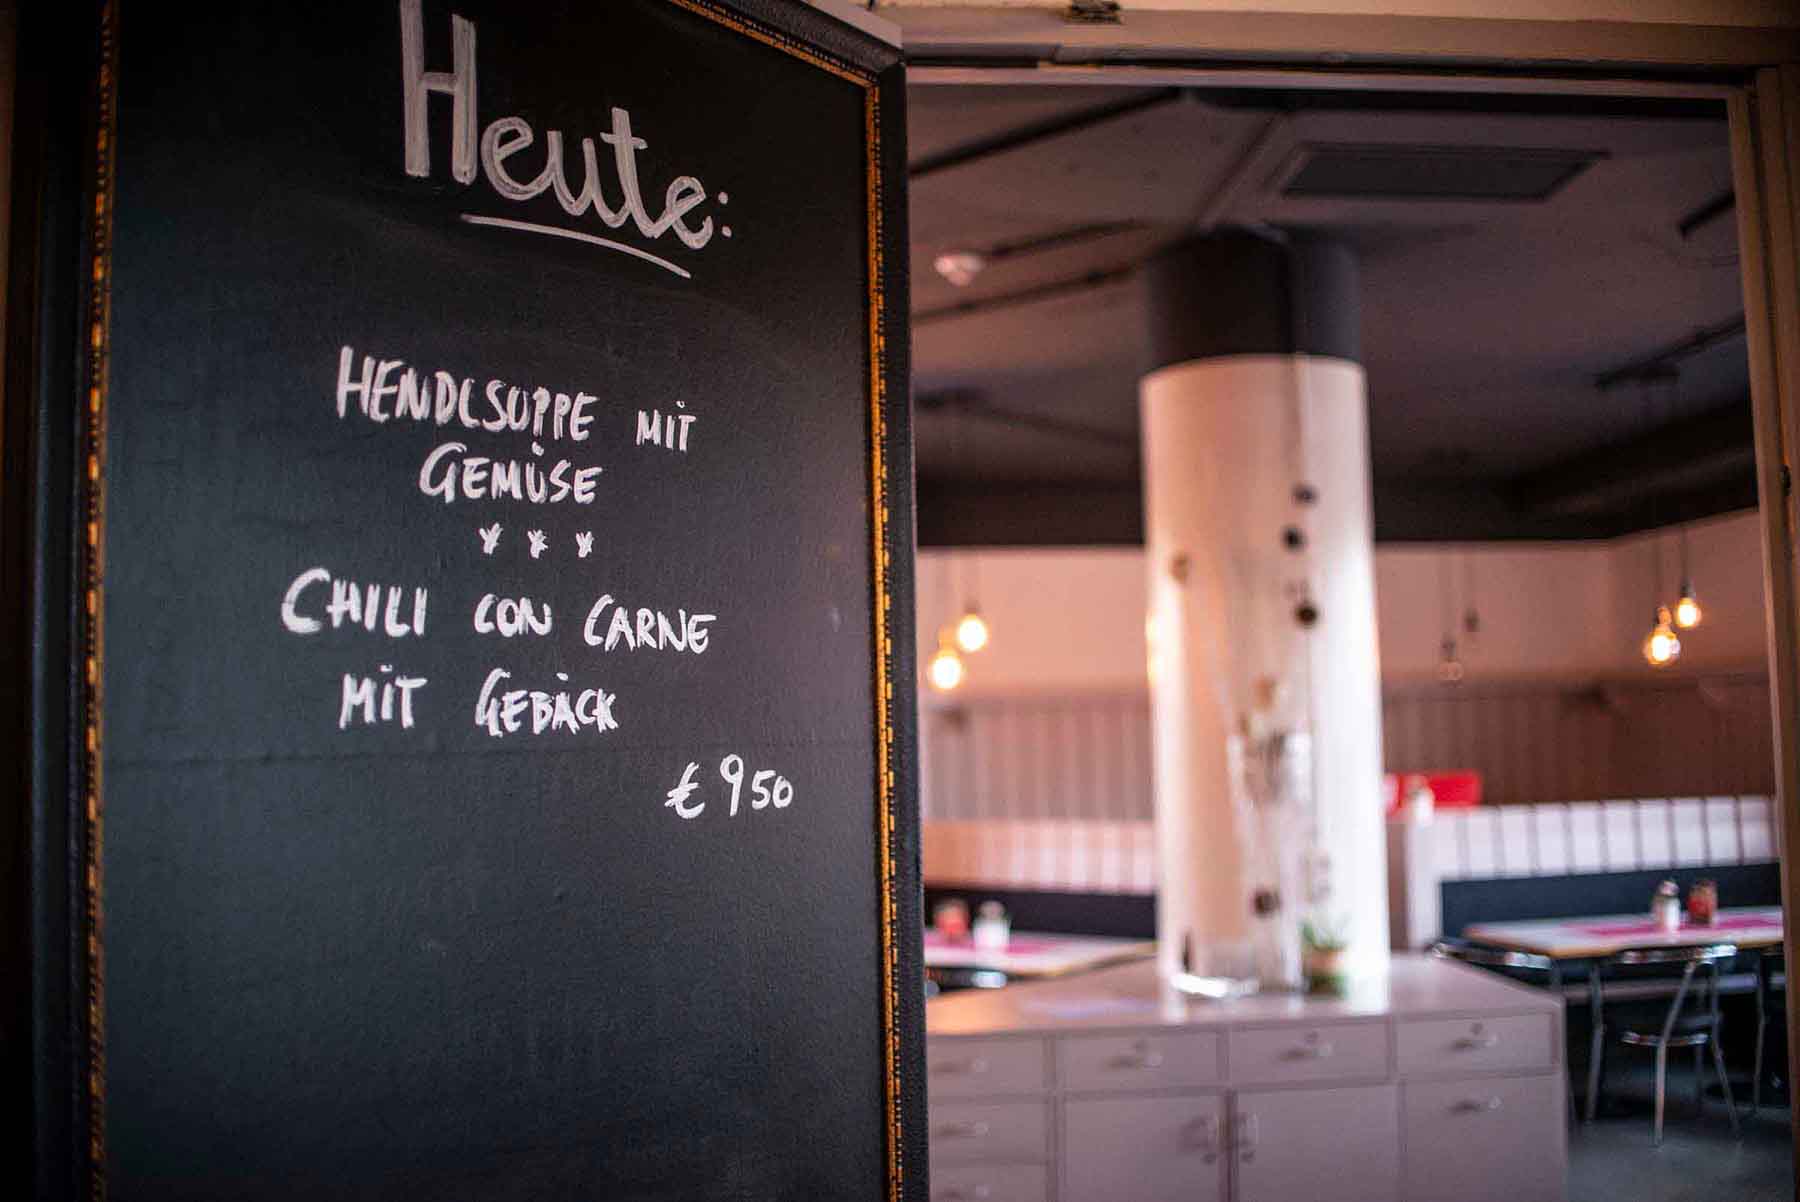 Heute:
HENDLSUPPE MIT
GEMÜSE
* * *
CHILI CON CARNE
MIT GEBÄCK
€ 950